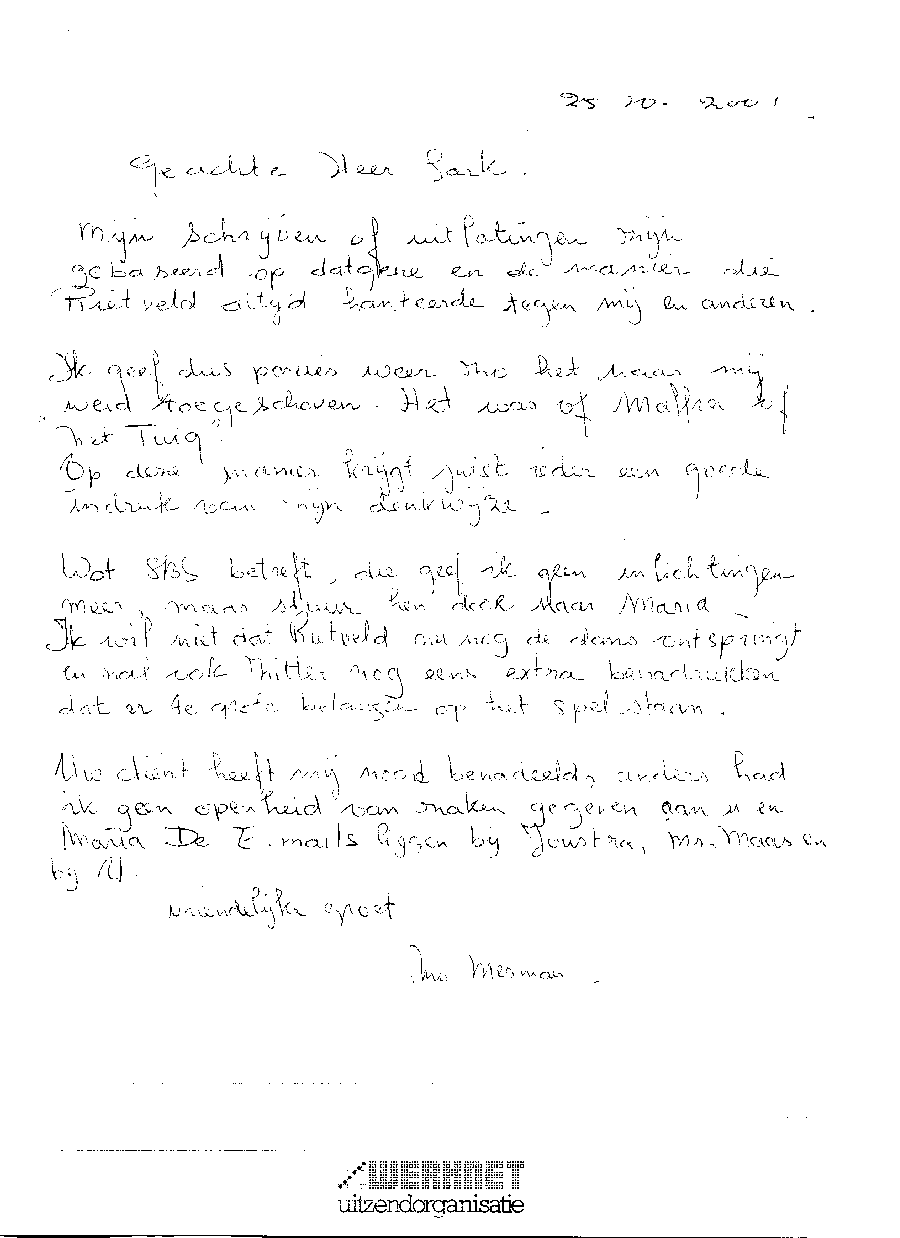 25 10. 2001
Geachte Heer Sark.
Mijn Schrijven of uitlatingen zijn
gebaseerd op datgene en de manier die
Rietveld altijd hanteerde tegen mij en anderen.
Ik geef dus precies weer zo het naar mij
werd toegeschoven. Het was of Maffia of
"het Tuig".
Op deze manier krijgt juist ieder een goede
indruk van zijn denkwijze.
Wat SBS betreft, die geef ik geen inlichtingen
meer, maar stuur hen door naar Maria.
Ik wil niet dat Rietveld nu nog de dans ontspringt
en zal ook nog eens extra benadrukken
dat er 4e grote belangen op het spel staan.
Uw cliënt heeft mij nooit benadeeld, anders had
ik geen openheid van zaken gegeven aan u en
Maria De E.mails liggen bij Joustra, mr. Maas en
bij U.
vriendelijke groet
Mesman.
WERKNET
uitzendorganisatie